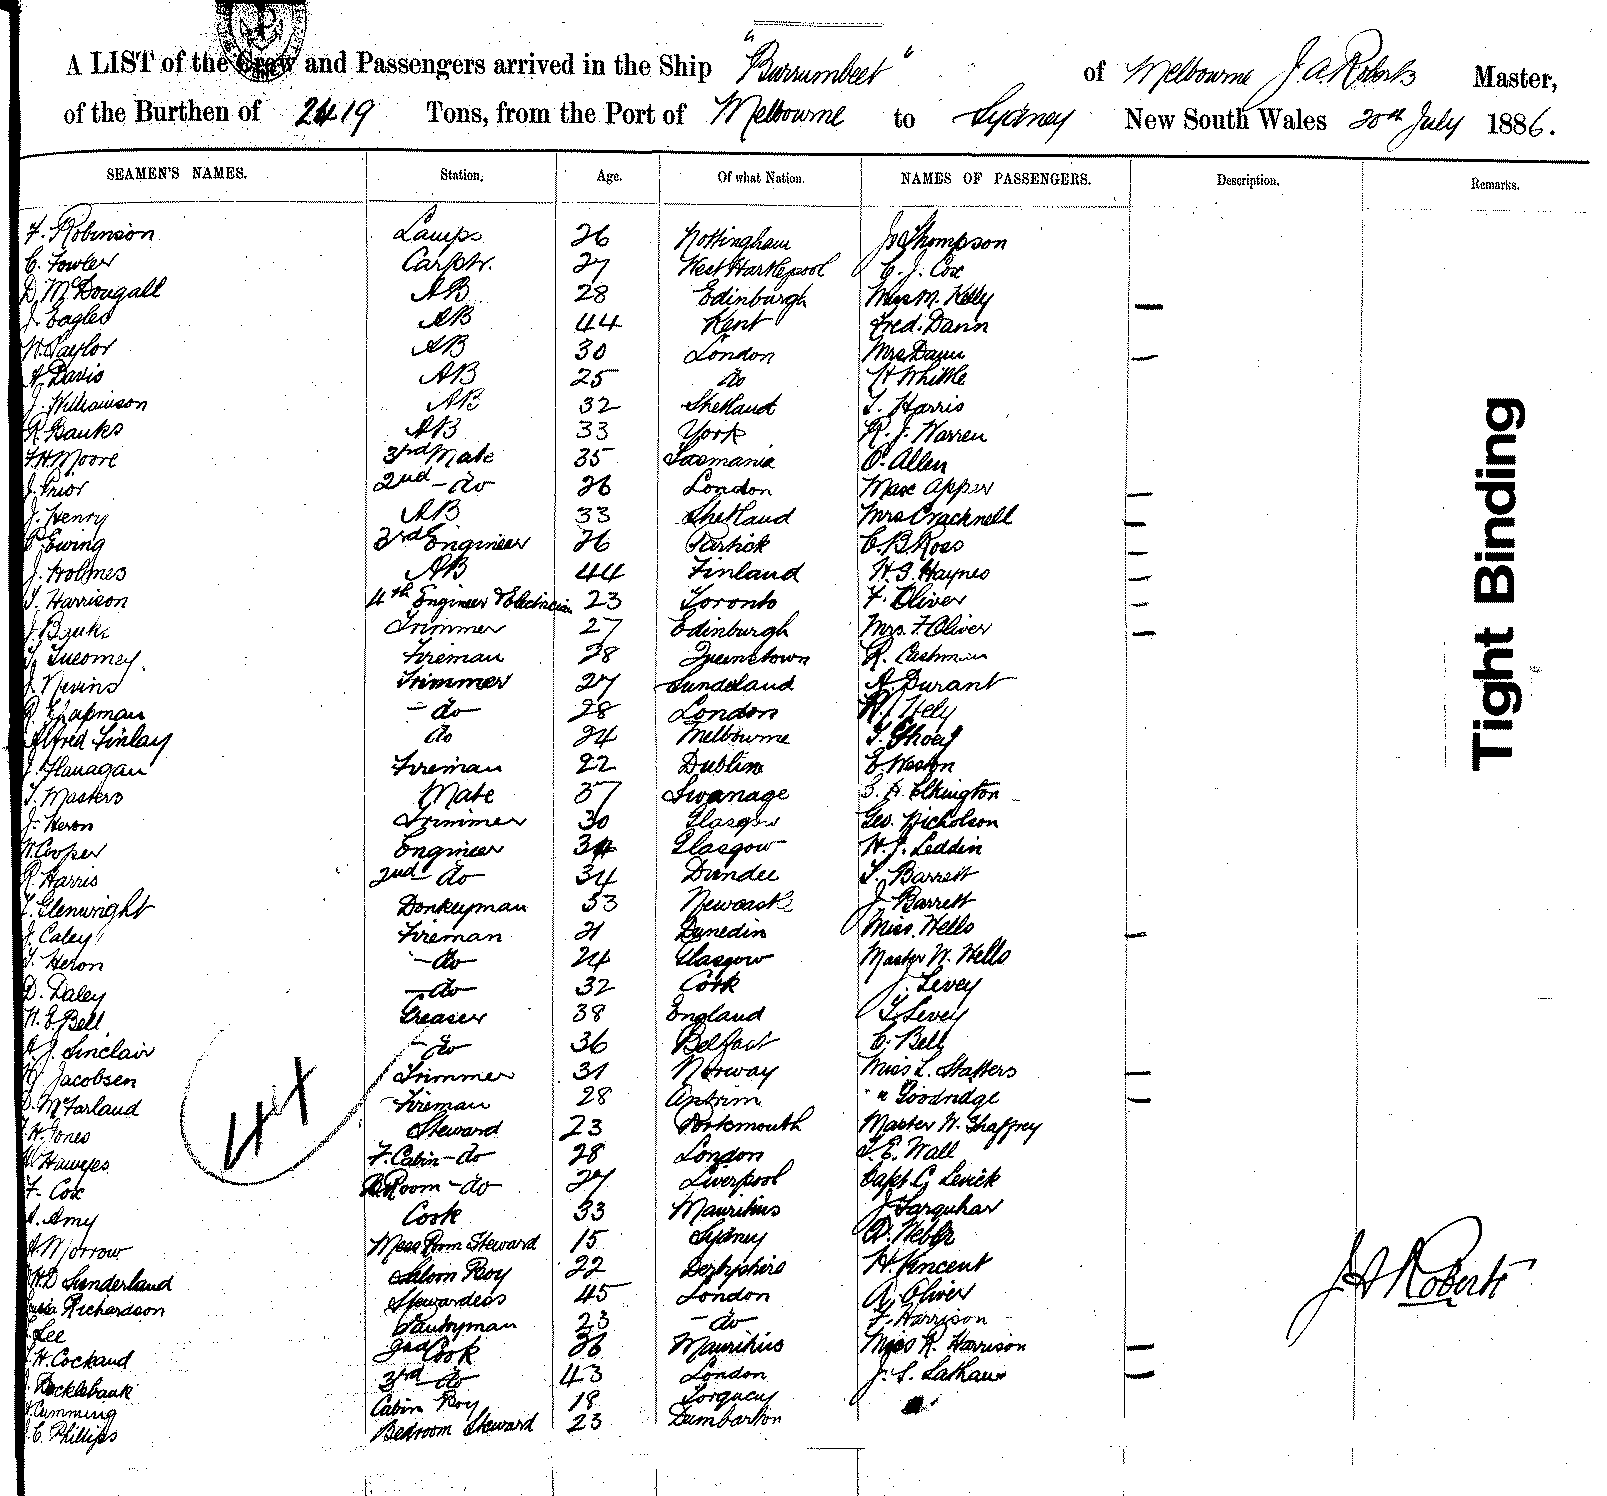 A LIST of the Crew and Passengers arrived in the Ship "Burrumbeet" of Melbourne J A Roberts Master,
of the Burthen of 2419 Tons, from the Port of Melbourne to Sydney New South Wales 20th July 1886.
SEAMEN'S NAMES. Station. Age. Of what Nation. NAMES OF PASSENGERS. Description. Remarks.
F. Robinson Lamps 26 Nottingham Jas Thompson
C. Fowler Carptr. 27 West Hartlepool C. J. Cox
D. McDougall AB 28 Edinburgh Miss M. Kelly —
J. Eagles AB 44 Kent Fred. Dann
W. Taylor AB 30 London Mrs Dann —
A. Davis AB 25 do H Whittle
J. Williamson AB 32 Shetland T. Harris
R. Banks AB 33 York R. J. Warren
F H Moore 3rd Mate 35 Tasmania O. Allen
J. Prior 2nd - do 26 London Max Apper —
J. Henry AB 33 Shetland Mrs Cracknell —
Ewing 3rd Engineer 26 Partick C. B. Ross —
J. Holmes AB 44 Finland H. S. Haynes —
T. Harrison 4th Engineer & Electrician 23 Toronto F. Oliver —
J. Trimmer 27 Edinburgh Mrs. F. Oliver —
Tucomey. Fireman 28 Queenstown R. Cashman
J. Nevins Trimmer 27 Sundeland A. Durant
R. Chapman - do 28 London Hely
Alfred Finlay do 24 Melbourne T.
J. Flanagan Fireman 22 Dublin E Weston
T. Masters Mate 37 Swanage S. A. Elkington
J. Heron Trimmer 30 Glasgow Geo. Nicholson
W. Cooper Engineer 34 Glasgow H. J. Leddin
R. Harris 2nd - do 34 Dundee T. Barrett
T. Glenwright Donkeyman 53 Newcastle J. Barrett
J. Caley Fireman 21 Dunedin Miss. Wells —
T. Heron - do 24 Glasgow Master W. Wells
D. Daley - do 32 Cork J. Levey
W. E. Bell Greaser 38 England T. Levey
A. J. Sinclair - do 36 Belfast C. Bell
Jacobsen Trimmer 31 Norway Miss L. Statters —
D. McFarland Fireman 28 Antrim " Goodridge —
H. Jones Steward 23 Portsmouth Master W. Shaffrey
Hawejes F. Cabin - do 28 London T. E. Wall
F. Cox B Room - do 27 Liverpool Capt. G. Levick
A. Amy Cook 33 Mauritius J. Farquhar
A Morrow Mess Room Steward 15 Sydney A. Weber
H D Sunderland Saloon Boy 22 Derbyshire H. Vincent
Richardson Stewardess 45 London A. Oliver
Lee Pantryman 23 - do F. Harrison
H. Cockaud 2nd Cook 26 Mauritius Miss R. Harrison —
Hocklebank 3rd - do 43 London J. S. Latham —
Cumming Cabin Boy 18 Torquay
C. Phillips Bedroom Steward 23 Dumbarton
44
J A Roberts
Tight Binding